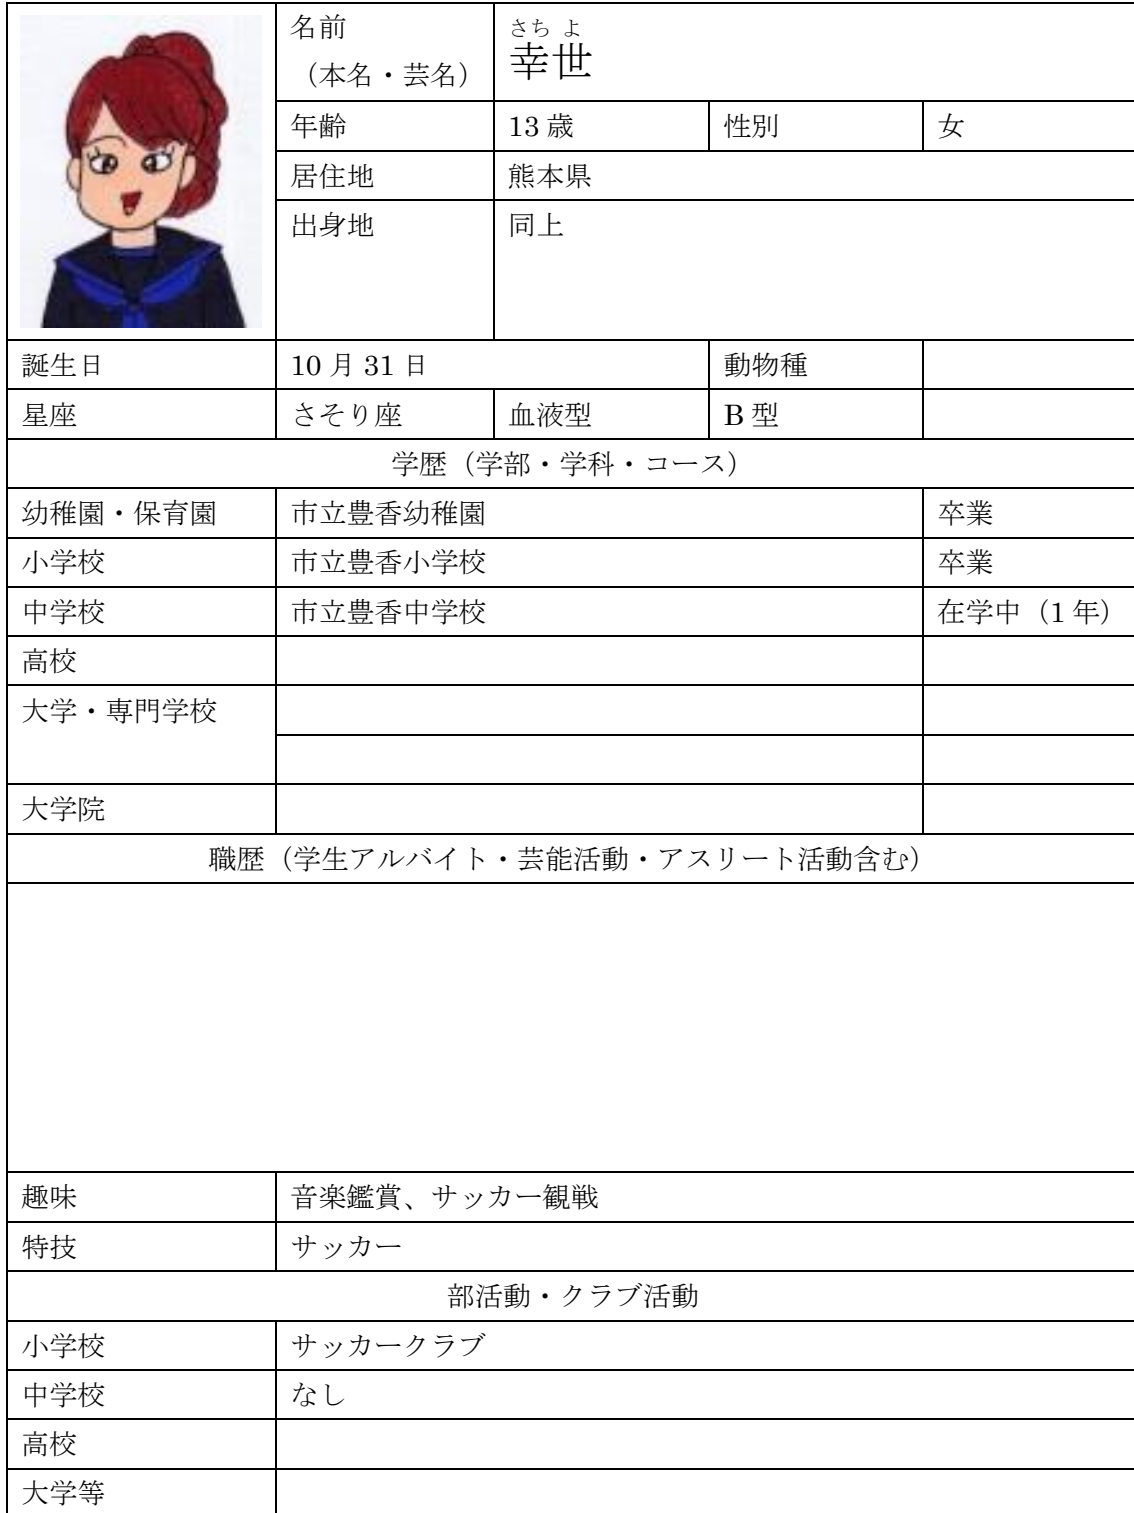 名前
（本名・芸名）
さち よ
幸世
年齢 13歳 性別 女
居住地 熊本県
出身地 同上
誕生日 10月31日 動物種
星座 さそり座 血液型 B型
学歴（学部・学科・コース）
幼稚園・保育園 市立豊香幼稚園 卒業
小学校 市立豊香小学校 卒業
中学校 市立豊香中学校 在学中（1年）
高校
大学・専門学校
大学院
職歴（学生アルバイト・芸能活動・アスリート活動含む）
趣味 音楽鑑賞、サッカー観戦
特技 サッカー
部活動・クラブ活動
小学校 サッカークラブ
中学校 なし
高校
大学等